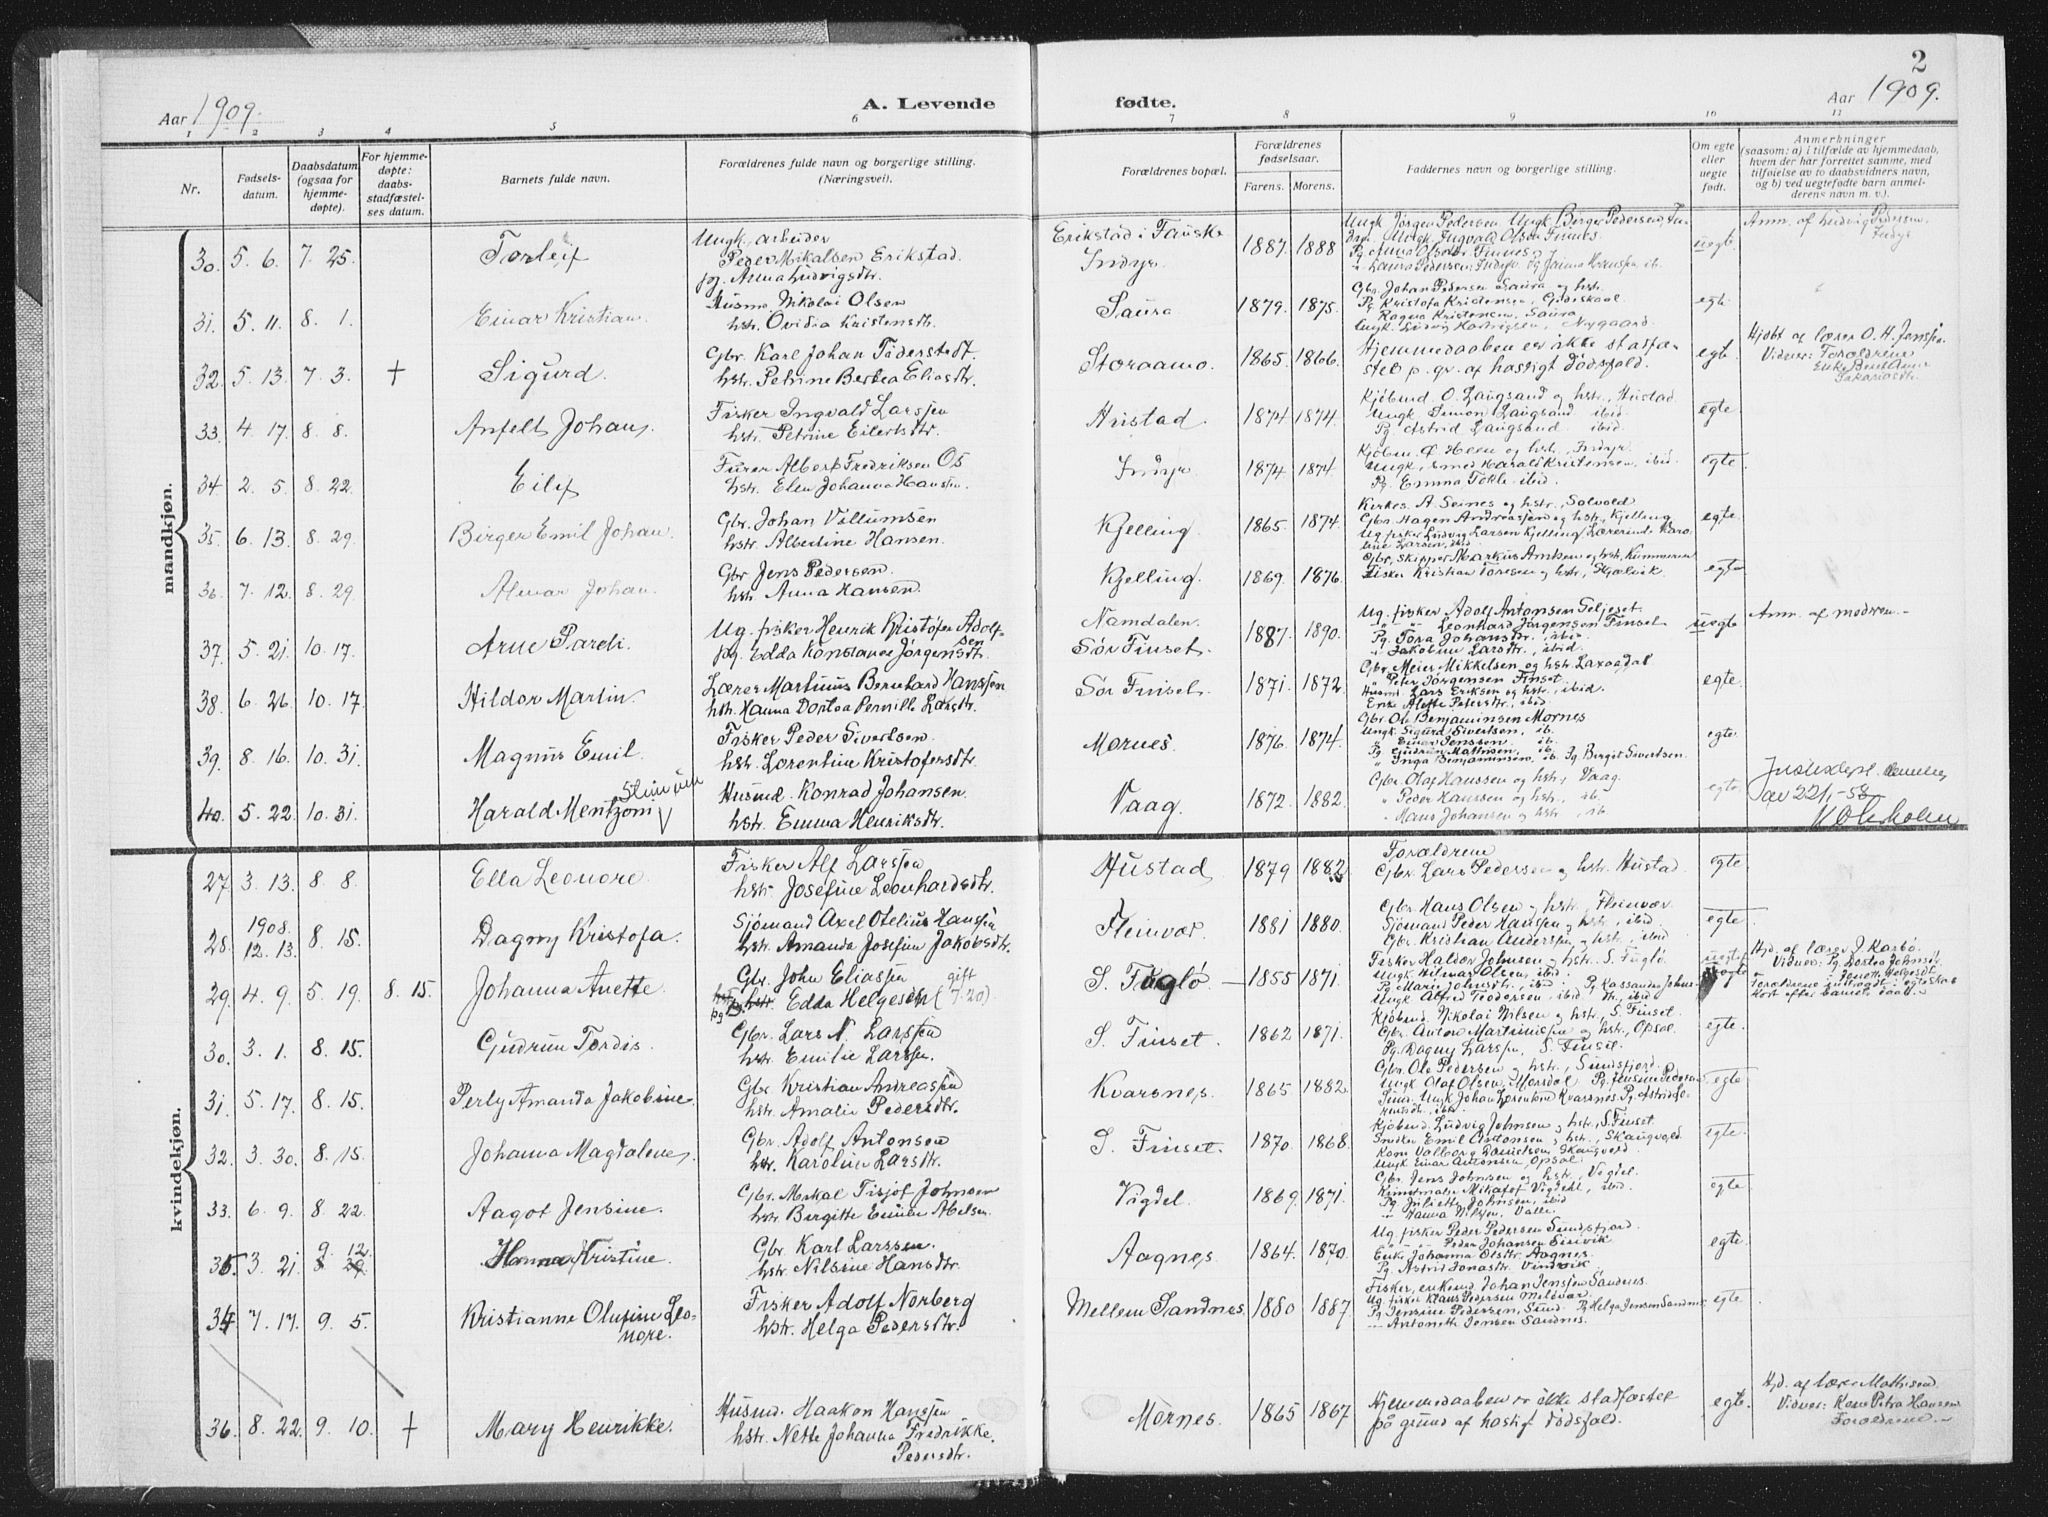 2
Aar 1909.
A. Levende
fødte.
Aar 1909.
1 2 3 4 5 6 7 8 9 10 11
Nr.
Fødsels-
datum.
Daabsdatum
(ogsaa for
hjemme-
døpte).
For hjemme-
døpte:
daabs-
stadfæstel-
ses datum.
Barnets fulde navn.
Forældrenes fulde navn og borgerlige stilling.
(Næringsvei).
Forældrenes bopæl.
Forældrenes
fødselsaar.
Farens. Morens.
Faddernes navn og borgerlige stilling.
Om egte
eller
uegte
født.
Anmerkninger
(saasom: a) i tilfælde av hjemmedaab,
hvem der har forrettet samme, med
tilføielse av to daabsvidners navn,
og b) ved uegtefødte barn anmel-
derens navn m. v.).
mandkjøn.
30. 5. 6. 7. 25. Torleif
Ungk. arbeider
Peder Mikalsen Erikstad.
pg. Anna Ludvigsdtr.
Erikstad i Fauske
Indyr.
1887. 1888
Ungk Jørgen Pedersen Ungk Birger Pedersen, In-
dyr. Ungk Ingvald Olsen Finnes
uegte.
Anm. af Ludvig Pedersen
Indyr
31. 5. 11. 8. 1. Einar Kristian.
Husm. Nikolai Olsen
hstr. Ovidia Kristensdtr.
Saura
1879. 1875.
Gbr. Johan Pedersen Saura og hstr.
Pg Kristofa Kristensen, Gildeskaal.
Ragna Kristensen, Saura
egte.
32. 5. 13. 7. 3. + Sigurd.
Gbr. Karl Johan Føderstedt.
hstr. Petrine Berbea Eliasdtr.
Storaamo.
1865. 1866.
Hjemmedaaben er ikke stasfæ-
stet p. gr. af hastigt dødsfald.
egte.
Hjdbt af lærer O. H. Jenssen.
Vidner: Forældrene
33. 4. 17. 8. 8. Anfelt Johan.
Fisker Ingvald Larssen
hstr. Petrine Eilertsdtr.
Hustad.
1874 1874.
Kjøbmd. O. Laugsand og hstr., Hustad
Ungk. Simon Laugsand ibid.
Pg Astrid Laugsand ibid.
egte.
34. 2. 5. 8. 22. Eilif
Furer Albert Fredriksen Os
hstr. Elen Johanna Hansen.
Indyr
1874. 1874.
Kjøbm. Ø Heen og hstr., Indyr.
Ungk, smed Harald Kristensen, ibid.
Pg. Emma Tokle ibid.
egte.
35. 6. 13. 8. 29. Birger Emil Johan.
Gbr. Johan Villumsen
hstr. Albertine Hansen.
Kjelling
1865. 1874.
Kirkes. A. Seines og hstr., Solvold
Gbr. Hagen Andreassen og hstr., Kjelling
Ug fisker Ludvig Larsen Kjelling Lærerinde Karo
line Larsen, ibid.
egte.
36. 7. 12. 8. 29. Almar Johan.
Gbr Jens Pedersen.
hstr. Anna Hansen.
Kjelling.
1869. 1876.
Gbr, skipper Markus Amtsen og hstr, Kummeren
Fisker Kristian Toresen og hstr., Hjælvik.
egte
37. 5. 21. 10. 17. Arne Pareli.
Ug. fisker Henrik Kristofer Adolf-
sen
pg. Edda Konstanse Jørgensdtr.
Namdalen.
Sør Finset.
1887. 1890.
Ug. fisker Adolf Antonsen Seljeset.
" " Leonhard Jørgensen Finset
Pg. Tora Johansdtr., ibid.
" Jakobine Larsdtr., ibid.
uegte
Anm. af modren. –
38. 6. 26. 10. 17. Hildor Martin.
Lærer Martinus Bernhard Hanssen
hstr. Hanna Dortea Pernille Larsdtr.
Sør Finset.
1871. 1872.
Gbr. Meier Mikkelsen og hstr. Laxaadal
" Peter Jørgensen Finset.
Husmd. Lars Eriksen og hstr., ibid.
Enke Alette Petersdtr., ibid.
egte.
39. 8. 16. 10. 31. Magnus Emil.
Fisker Peder Sivertsen.
hstr. Lorentine Kristofersdtr.
Mornes.
1876. 1874.
Gbr. Ole Benjaminsen Mornes
Ungk. Sigurd Sivertsen, ib.
" Einar Jenssen ib.
Pg Gudrun Mathisen, ib.
" Inga Benjaminsen, ib. Pg Birgit Sivertsen.
egte.
40. 5. 22. 10. 31. Harald Mentzoni
Husmd. Konrad Johansen.
hstr. Emma Henriksdtr.
Vaag.
1872. 1882.
Gbr Olaf Hanssen og hstr., Vaag.
" Peder Hanssen og hstr., ib.
" Hans Johansen og hstr., ib.
egte
av 22/1-58
kvindekjøn.
27. 3. 13. 8. 8. Ella Leonore.
Fisker Alf Larssen
hstr. Josefine Leonhardsdtr.
Hustad
1879 1882.
Forældrene
Gbr. Lars Pedersen og hstr. Hustad
egte
28. 1908. 12. 13. 8. 15. Dagny Kristofa.
Sjømand Axel Otelius Hanssen
hstr. Amanda Josefine Jakobsdtr.
Fleinvær.
1881 1880.
Gbr. Hans Olsen og hstr, Fleinvær.
Sjømand Peder Hanssen og hstr., ibid.
Gbr. Kristian Anderssen og hstr., ibid
egte.
29. 4. 9. 5. 19. 8. 15. Johanna Anette.
Gbr. John Eliassen
hstr. Edda Helgesen (gift
7. 20)
pg
S. Fuglø –
1855 1871.
Fisker Haldor Johnsen og hstr. S. Fuglø.
Ungk Hilmar Olsen, ibid.
Pg Marie Johnsdtr., ibid. Pg Kassandra Johns-
Ungk Alfred Teodorsen, ibid dtr., ibid
uegte
Hjd. af lærer J. Karbø.
Forældrene indtraadt i egteskab
kort efter barnets daab. –
30. 3. 1. 8. 15. Gudrun Tordis.
Gbr. Lars N. Larssen
hstr. Emilie Larssen.
S. Finset.
1862 1871.
Kjøbmd. Nikolai Nilsen og hstr., S. Finset.
Gbr. Anton Martinussen og hstr., Opsal.
Pg. Dagny Larssen, S. Finset.
egte.
31. 5. 17. 8. 15. Perly Amanda Jakobine.
Gbr. Kristian Andreassen
hstr. Amalie Pedersdtr.
Kvarsnes.
1865 1882.
Gbr. Ole Pedersen og hstr., Sundsfjord.
Ungk Olaf Olsen, Mersdol Pg. Jensine Pedersen
Sund. Ungk Johan Lorentsen Kvarsnes Pg Astrid Lo-
rensdtr., ibid.
egte
32. 3. 30. 8. 15. Johanna Magdalene.
Gbr. Adolf Antonsen
hstr. Karoline Larsdtr.
S. Finset.
1870. 1868.
Kjøbmd. Ludvig Johnsen og hstr., S. Finset.
Snedker Emil Antonsen og hstr., Skaugvold.
Kone Valborg Danielsen Skaugvold.
Ungk Einar Antonsen, Opsal.
egte.
33. 6. 9. 8. 22. Aagot Jensine.
Gbr. Mikal Fisjof Johnsen
hstr. Birgitte Emilie Abelsen.
Vigdel.
1869. 1871.
Gbr. Jens Johnsen og hstr, Vigdel.
Pg. Juliette Johnsen, ibid
– Hanna Nilsen, Valle.
egte
35. 3. 21. 9. 12. 8 29. Hanna Kristine.
Gbr. Karl Larssen.
hstr. Nilsine Hansdtr.
Aagnes
1864. 1870.
Ug. fisker Peder Pedersen Sundsfjord.
" " Peder Johansen Sisivik
Enke Johanna Olsdtr. Aagnes.
Pg. Astrid Jonasdtr. Vindvik.
egte.
34. 7. 17. 9. 5. Kristianne Olufine Leo-
nore.
Fisker Adolf Norberg
hstr. Helga Pedersdtr.
Mellem Sandnes.
1880 1887
Fisker, enkemd Johan Jenssen Sandnes.
Ug fisker Klaus Pedersen Meldvær.
Pg Jensine Pedersen, Sund. Pg Helga Jensen Sandnes.
– Antonette Jensen Sandnes.
egte
36. 8. 22. 9. 10. + Mary Henrikke.
Husmd. Haakon Hanssen
hstr. Nette Johanna Fredrikke.
Pedersdtr.
Mornes.
1865 1867
Hjemmedaaben er ikke stadfæstet
på grund af hastigt dødsfald.
egte.
Hjd. af lærer Mathisen.
Vidner: Kone Petra Hansen
Forældrene. –